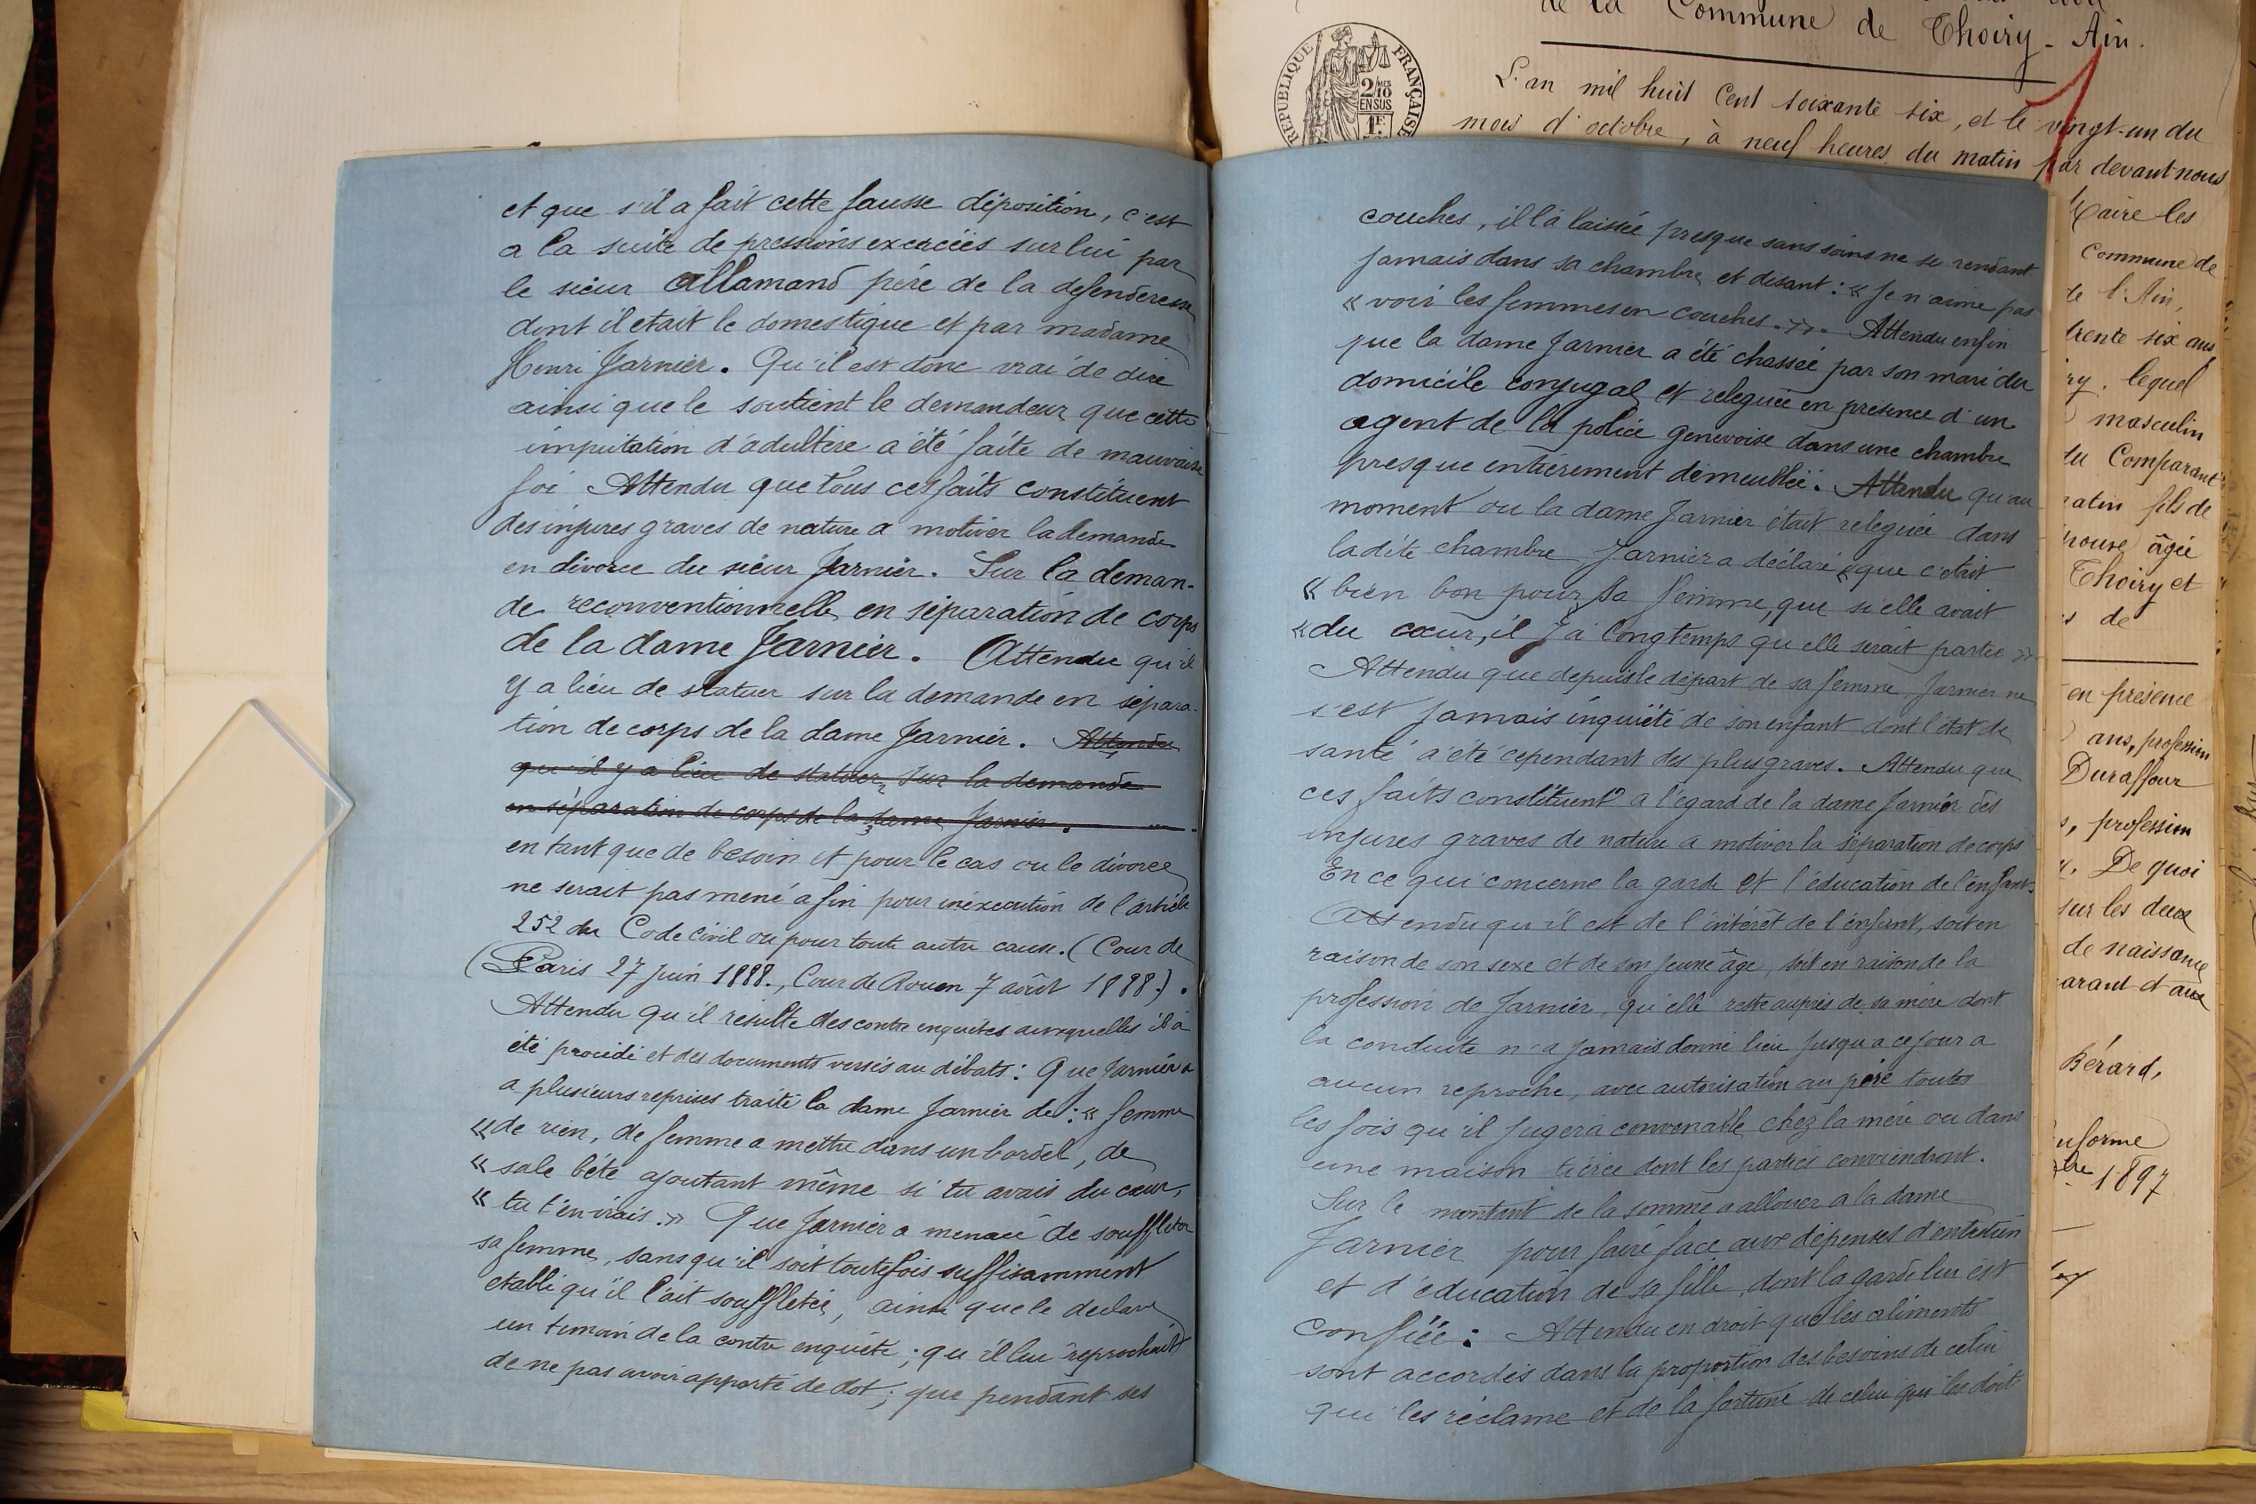 et que s'il a fait cette fausse déposition, c'est
a la suite de pressions exercées sur lui par
le sieur Allamand père de la defenderesse
dont il etait le domestique et par madame
Henri Jarnier. Qu'il est donc vrai de dire
ainsi que le soutient le demandeur que cette
imputation d'adultère a été faite de mauvaise
foi Attendu que tous ces faits constituent
des injures graves de nature a motiver la demande
en divorce du sieur Jarnier. Sur la deman-
de reconventionnelle en séparation de corps
de la dame Jarnier. Attendu qu'il
y a lieu de statuer sur la demande en sépara-
tion de corps de la dame Jarnier. Attendu
qu'il y a lieu de statuer sur la demande
en séparation de corps de la dame Jarnier.
en tant que de besoin et pour le cas ou le divorce
ne serait pas mené a fin pour inéxecution de l'article
252 du Code Civil ou pour toute autre cause. (Cour de
(Paris 27 Juin 1888., Cour de Rouen 7 août 1888.).
Attendu qu'il résulte des contre enquêtes auxquelles il a
été procédé et des documents versés au débats: Que Jarnier a
a plusieurs reprises traité la dame Jarnier de: « femme
« de rien, de femme a mettre dans un bordel, de
« sale bête ajoutant même si tu avais du cœur,
« tu t'en irais.» Que Jarnier a menacé de souffleter
sa femme, sans qu'il soit toutefois suffisamment
etabli qu'il l'ait souffletée, ainsi que le declare
un témoin de la contre enquête; qu'il lui reprochait
de ne pas avoir apporté de dot; que pendant ses
de la Commune de Thoiry - Ain.
REPUBLIQUE FRANÇAISE
2/10 EN SUS
L'an mil huit Cent soixante six, et le vingt-un du
mois d'octobre, à neuf heures du matin par devant nous
couches, il l'a laissée presque sans soins ne se rendant
jamais dans sa chambre et disant: « Je n'aime pas
« voir les femmes en couches.». Attendu enfin
que la dame Jarnier a été chassée par son mari du
domicile conjugal et releguée en présence d'un
agent de la police genevoise dans une chambre
presque entièrement demeublée. Attendu qu'au
moment ou la dame Jarnier était releguée dans
ladite chambre Jarnier a déclaré « que c'etait
« bien bon pour sa femme, que si elle avait
« du cœur, il y a longtemps qu'elle serait partie »
Attendu que depuis le départ de sa femme, Jarnier ne
s'est jamais inquiété de son enfant dont l'état de
santé a été cependant des plus graves. Attendu que
ces faits constituent a l'égard de la dame Jarnier des
injures graves de nature a motiver la séparation de corps
En ce qui concerne la garde et l'éducation de l'enfant
Attendu qu'il est de l'intérêt de l'enfant, soit en
raison de son sexe et de son jeune âge, soit en raison de la
profession de Jarnier, qu'elle reste auprès de sa mère dont
la conduite n'a jamais donné lieu jusqu'a ce jour a
aucun reproche, avec autorisation au père toutes
les fois qu'il jugera convenable chez la mère ou dans
une maison tierce dont les parties conviendront.
Sur le montant de la somme a allouer a la dame
Jarnier pour faire face aux dépenses d'entretien
et d'éducation de sa fille, dont la garde lui est
confiée: Attendu en droit que les aliments
sont accordés dans la proportion des besoins de celui
qui les réclame et de la fortune de celui qui les doit
Maire les
Commune de
de l'Ain,
trente six ans
lequel
masculin
du Comparant
matin fils de
épouse âgée
Thoiry et
de
en présence
ans, profession
Duraffour
profession
De quoi
sur les deux
de naissance
Bérard,
1897